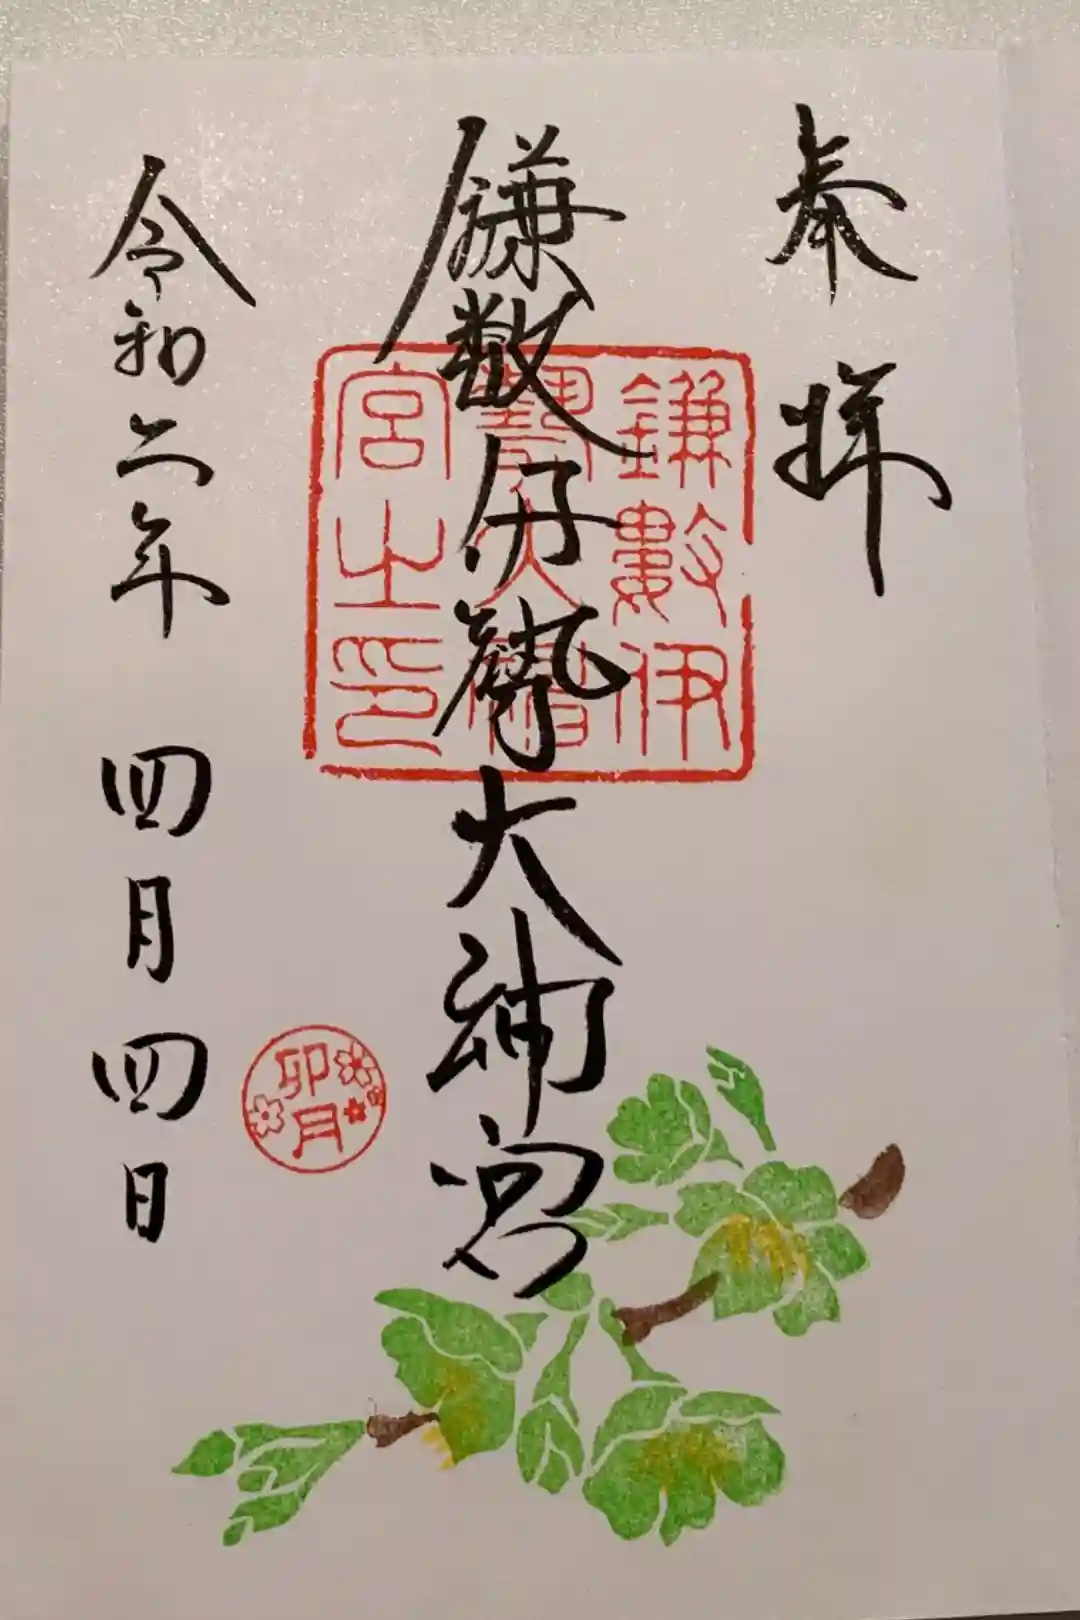 奉拝
鎌数伊勢大神宮
鎌數伊
勢大神
宮之印
令和六年 四月四日
卯月